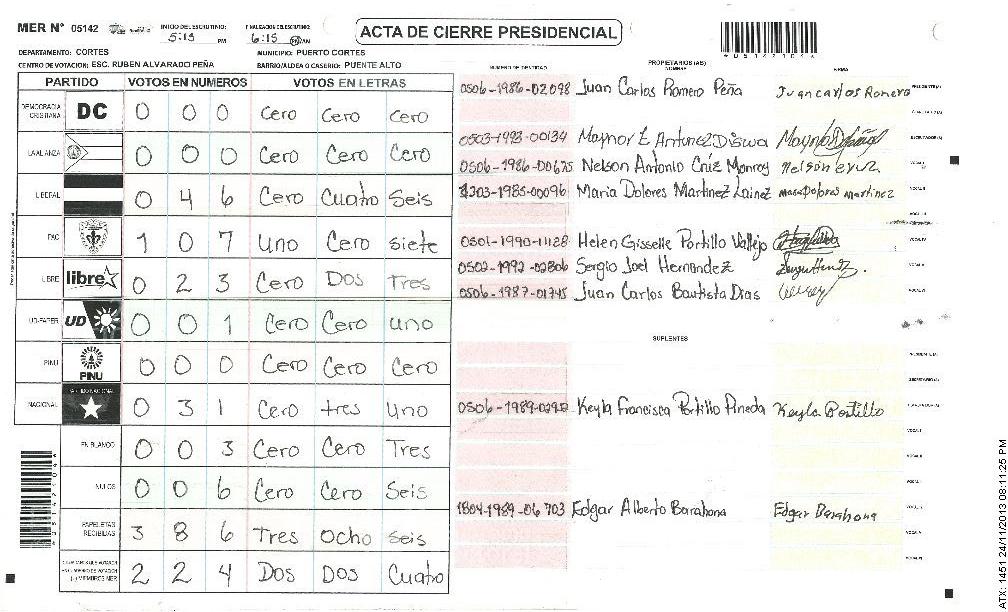 MER N° 05142 INICIO DEL ESCRUTINIO: 5:13 PM FINALIZACION DEL ESCRUTINIO: 6:15 AM
ACTA DE CIERRE PRESIDENCIAL
DEPARTAMENTO: CORTES MUNICIPIO: PUERTO CORTES
CENTRO DE VOTACION: ESC. RUBEN ALVARADO PEÑA BARRIO/ALDEA O CASERIO: PUENTE ALTO
PARTIDO VOTOS EN NUMEROS VOTOS EN LETRAS
DEMOCRACIA CRISTIANA DC 0 0 0 Cero Cero Cero
LA ALIANZA 0 0 0 Cero Cero Cero
LIBERAL 0 4 6 Cero Cuatro Seis
PAC 1 0 7 uno Cero siete
LIBRE libre 0 2 3 Cero Dos Tres
UD-FAPER UD 0 0 1 Cero Cero uno
PINU PINU 0 0 0 Cero Cero Cero
NACIONAL PARTIDO NACIONAL 0 3 1 Cero tres Uno
EN BLANCO 0 0 3 Cero Cero Tres
NULOS 0 0 6 Cero Cero Seis
PAPELETAS RECIBIDAS 3 8 6 Tres ocho seis
2 2 4 Dos Dos Cuatro
NUMERO DE IDENTIDAD PROPIETARIOS (AS) NOMBRE FIRMA
0506-1986-02098 Juan Carlos Romero Peña Juan carlos Romero PRESIDENTE(A)
SECRETARIO(A)
0503-1993-00134 Maynor E Antunez Diswa
0506-1986-00675 Nelson Antonio Cruz Monroy Nelson cruz
1303-1985-00096 Maria Dolores Martinez Lainez maria Dolores martinez
0501-1990-11128 Helen Gisselle Portillo Vallejo
0502-1992-02806 Sergio Joel Hernandez
0506-1987-01745 Juan Carlos Bautista Dias
SUPLENTES
PRESIDENTE(A)
SECRETARIO(A)
Keyla Francisca Portillo Pineda Keyla Portillo
1804-1989-06703 Edgar Alberto Barahona Edgar Barahona
ATX: 1451 24/11/2013 08:11:25 PM